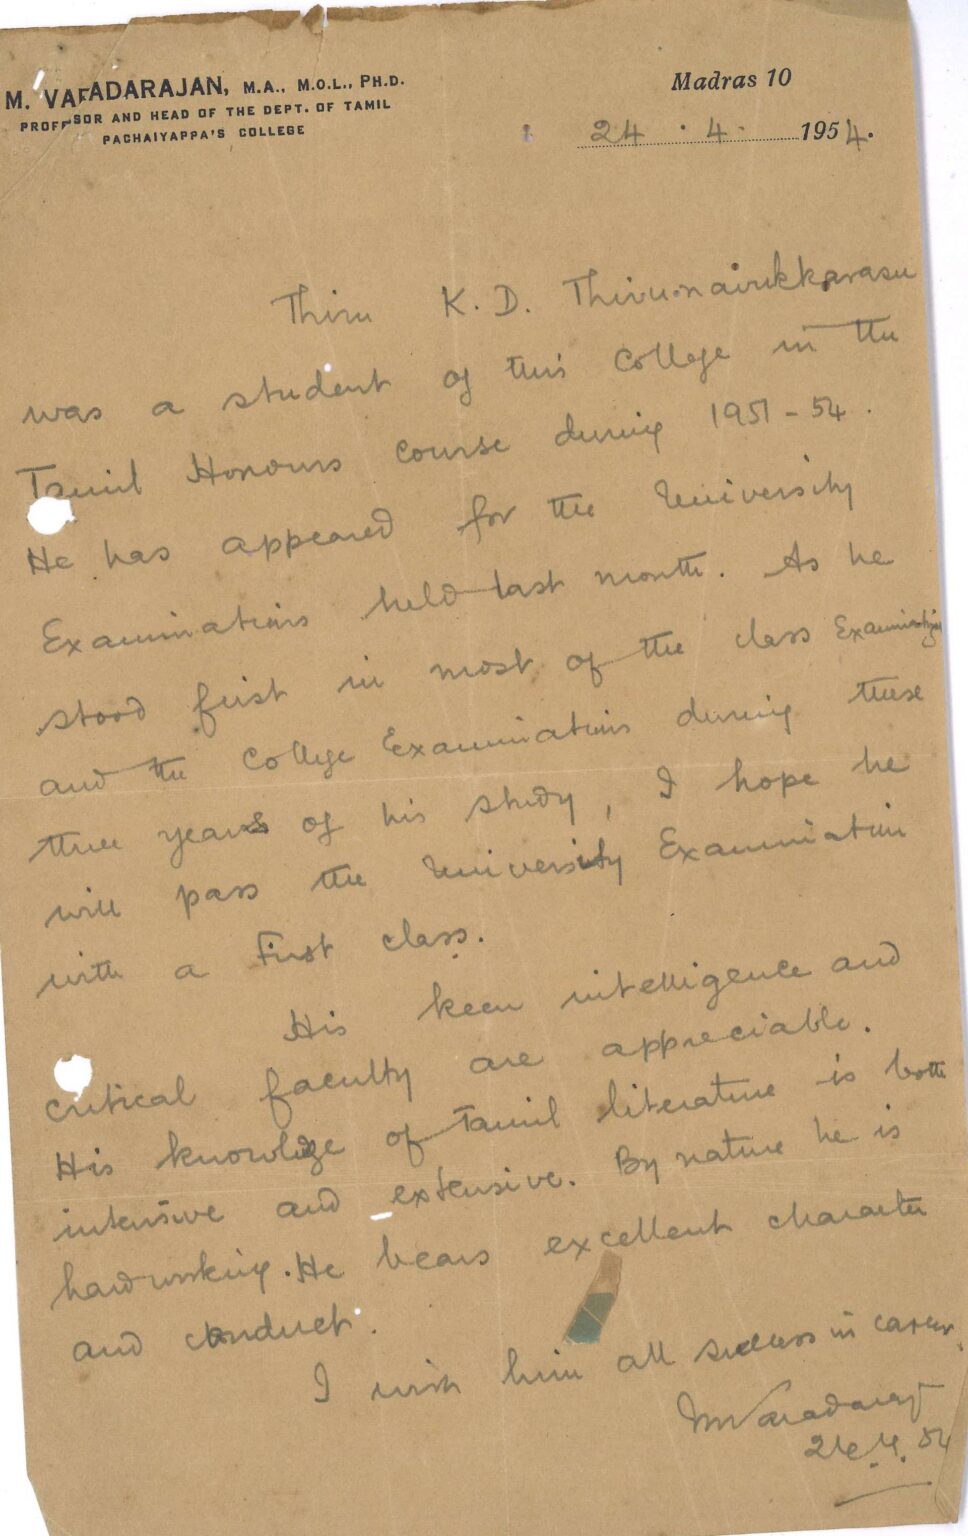 M. VARADARAJAN, M.A., M.O.L., PH.D.
PROFESSOR AND HEAD OF THE DEPT. OF TAMIL
PACHAIYAPPA'S COLLEGE
Madras 10
24 . 4 . 1954.
Thiru K. D. Thirunavukkarasu
was a student of this College in the
Tamil Honours course during 1951-54.
He has appeared for the University
Examinations held last month. As he
stood first in most of the class Examinations
and the College Examinations during these
three years of his study, I hope he
will pass the University Examination
with a First class.
His keen intelligence and
critical faculty are appreciable.
His knowledge of Tamil literature is both
intensive and extensive. By nature he is
hardworking. He bears excellent character
and conduct.
I wish him all success in career.
M Varadaraj
24.4.54